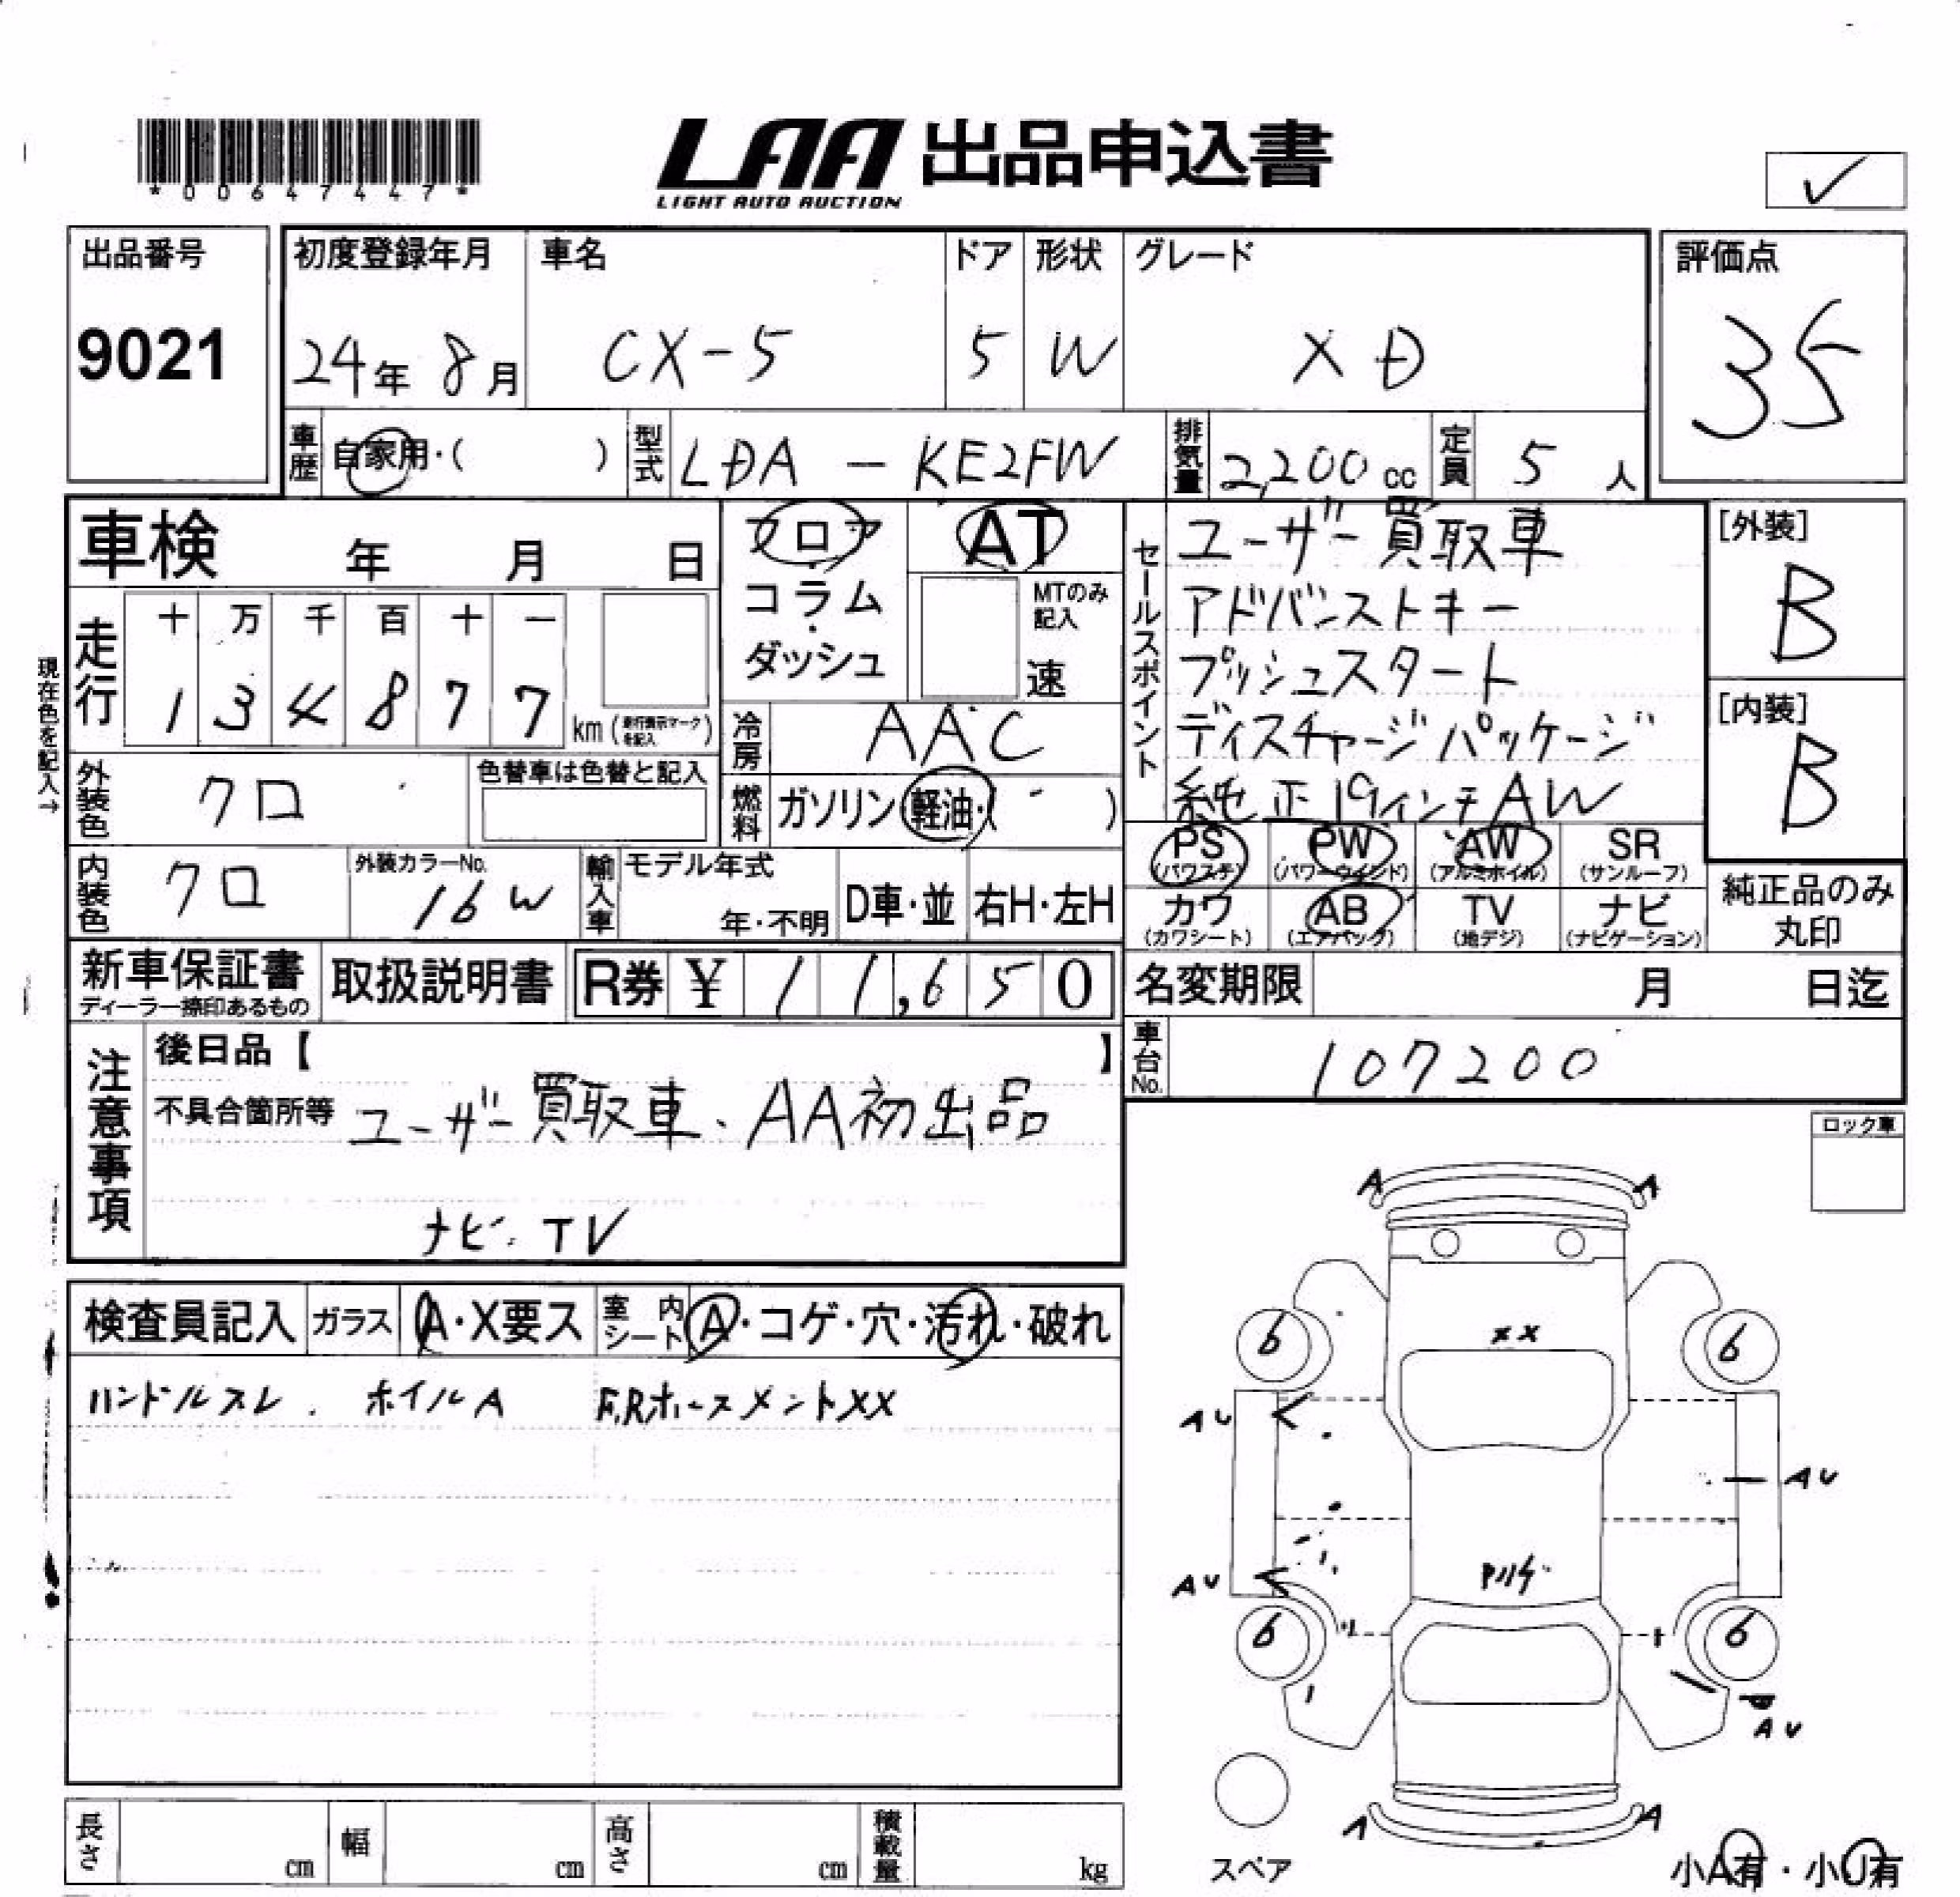 *00647447*
LAA 出品申込書
LIGHT AUTO AUCTION
✓
出品番号 初度登録年月 車名 ドア 形状 グレード 評価点
9021 24年 8月 CX-5 5 W XD 35
車歴 自家用・( ) 型式 LDA - KE2FW 排気量 2,200cc 定員 5人
車検 年 月 日
フロア・コラム・ダッシュ
AT
MTのみ記入
速
現在色を記入→
走行 十 万 千 百 十 一
1 3 4 8 7 7 km (走行表示マークを記入)
冷房 AAC
外装色 クロ 色替車は色替と記入
燃料 ガソリン・軽油・( )
内装色 クロ 外装カラーNo. 16W
輸入車 モデル年式 年・不明 D車・並 右H・左H
セールスポイント
ユーザー買取車
アドバンストキー
プッシュスタート
ディスチャージパッケージ
純正19インチAW
[外装]
B
[内装]
B
PS (パワステ) PW (パワーウインド) AW (アルミホイル) SR (サンルーフ)
カワ (カワシート) AB (エアバッグ) TV (地デジ) ナビ (ナビゲーション)
純正品のみ丸印
新車保証書 ディーラー捺印あるもの 取扱説明書 R券 ¥ 11,650
名変期限 月 日迄
車台No. 107200
注意事項
後日品【 】
不具合箇所等 ユーザー買取車、AA初出品
ナビ・TV
検査員記入 ガラス A・X要ス 室内シート A・コゲ・穴・汚れ・破れ
ハンドルスレ . ホイルA F,Rホースメント××
ロック車
A A
××
6 6
AU
AU
AU
6 6
AU
A A
スペア
小A有・小U有
長さ cm 幅 cm 高さ cm 積載量 kg